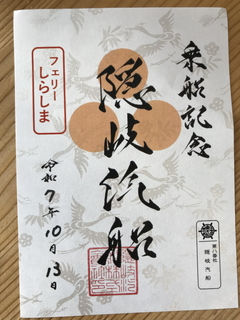 乗船記念
隠岐汽船
フェリー
しらしま
令和7年10月13日
第八番社
隠岐汽船